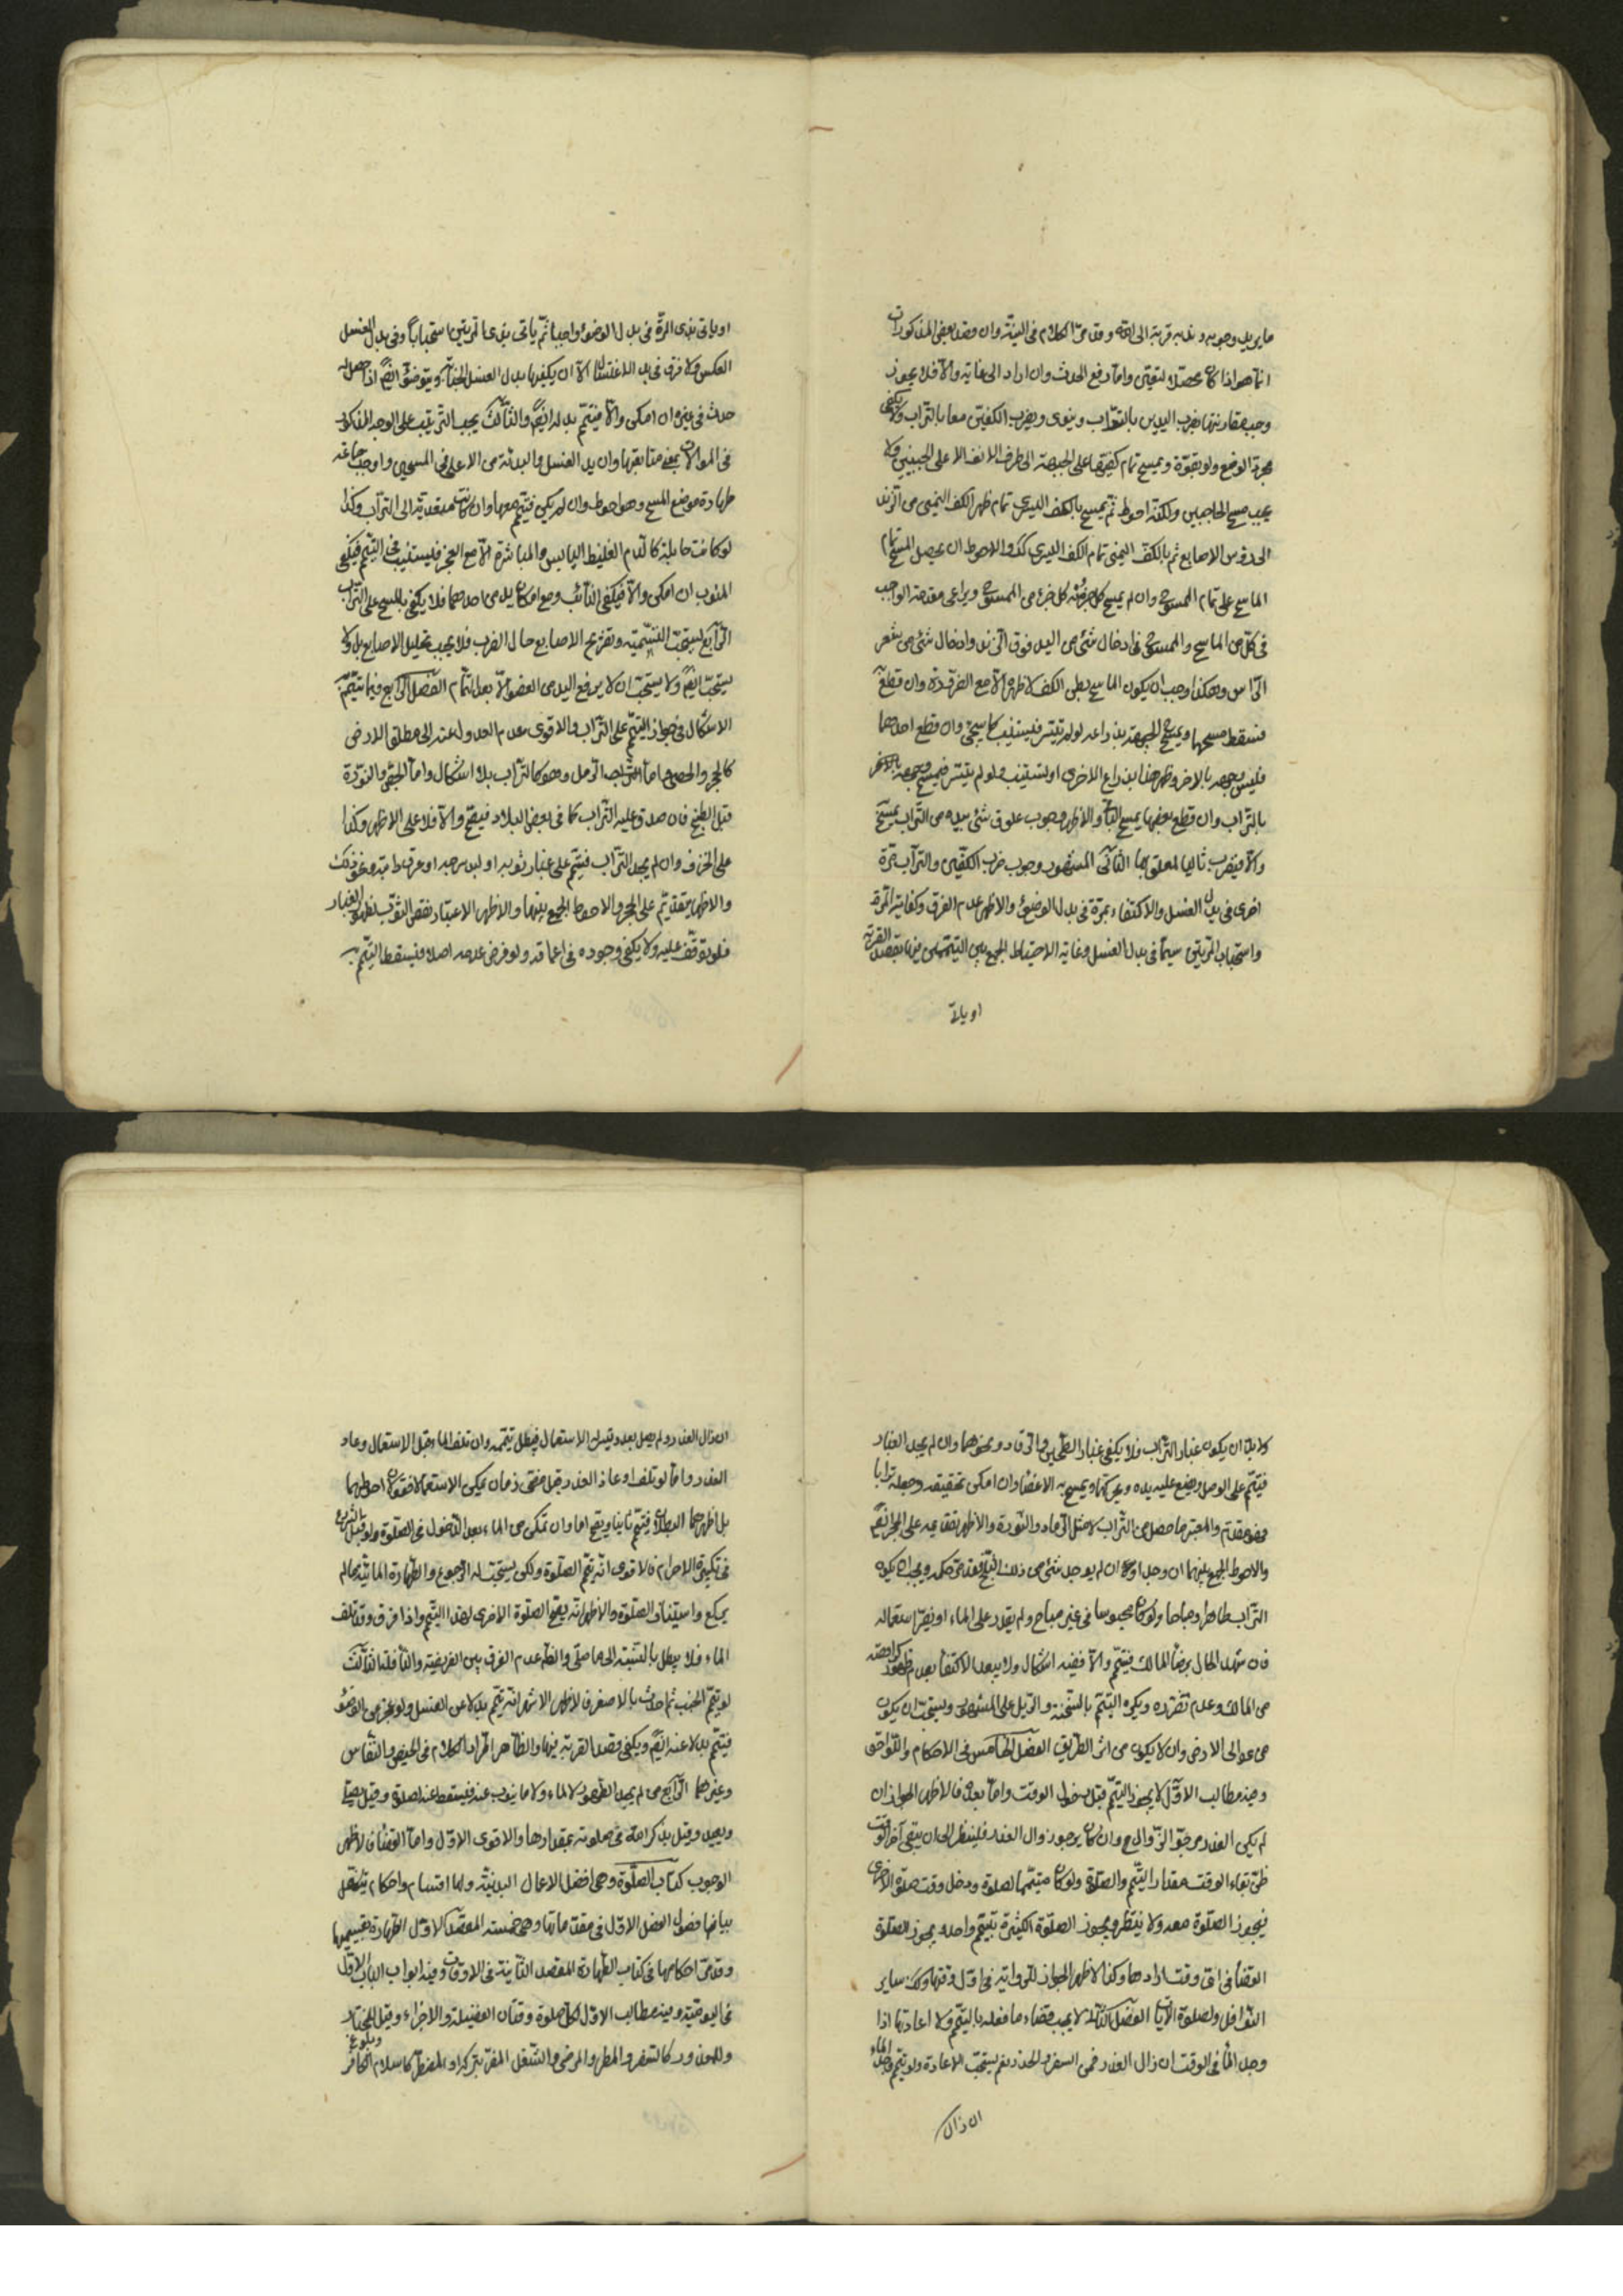 ما يريد وجوبه وندبه قربة الى الله وقد مرّ الكلام فى النيّة وان قصد بعض المذكورات
انما هو اذا كان محصّلا لتعيّن واما رفع الحدث وان اراد الى غايته والّا فلا يجوز
وجب مقارنتها بضرب اليدين بالتراب وينوى ويضرب الكفين معا بالتراب ولا يكفى
مجرّد الوضع ولو بقوّة ويمسح تمام كفيهما على الجبهة الى طرف الانف الاعلى والجبينين ولا
يجب مسح الحاجبين ولكنّه احوط ثم يمسح بالكف اليسرى تمام ظهر الكف اليمنى من الزند
الى رؤس الاصابع ثم بالكفّ اليمنى تمام الكف اليسرى كذا والاحوط ان يحصل المسح تمام
الماسح على تمام الممسوح وان لم يمسح كل جزء منه كل جزء من الممسوح ويراعى مقدمة الواجب
فى كلّ من الماسح والممسوح فى ادخال شئ من اليد فوق الزند وادخال شئ من شعر
الرّاس وهكذا وجب ان يكون الماسح بطن الكف لا ظهره الّا مع الضرورة وان قطع
فسقط مسحها ويمسح الجبهة بذراعه لو لم تتيسر فليستنيب كما سيجئ وان قطع احدهما
فليمسح جبهته بالاخر وظهر هذا بذراع الاخرى او ليستنيب ولو لم يتيسر فيمسح جبهته بالاخر
بالتراب وان قطع بعضها يمسح الباقى والاظهر وجوب علوق شئ بيده من التراب يمسح
والّا فيضرب ثانيا لمعلق بها الثانى المشهور وجوب ضرب الكفين والتراب مرة
اخرى فى بدل الغسل والاكتفاء بمرّة فى بدل الوضوء والاظهر عدم الفرق وكفاية المرة
واستحباب المرّتين سيما فى بدل الغسل وغاية الاحتياط الجمع بين التيممين بقصد القربة
او ياتى
او ياتى بذى المرّة فى بدل الوضوء واجبا ثم ياتى بذى المرتين استحبابا وفى بدل الغسل
العكس ولا فرق فى بدل الاغتسال الّا ان يكفيها بدل الغسل الجنابة ويتوضؤ ايضا اذا حصل له
حدث فى غيره ان امكن والّا فيتيمّم بدله ايضا والثالث يجب الترتيب على الوجه المذكور
فى الموالات بمعنى متابعتها وان بدل الغسل والبدئة من الاعلى فى المسحين واوجب جماعة
طهارة موضع المسح وهو احوط وان لم يكن فيتيمم معها وان كانت متعدّية الى التراب وكذا
لو كانت حايلة كالدم الغليظ اليابس والمباشرة الّا مع العجز فليستنيب فى التيمم فيكفى
المنوب ان امكن والّا فيكفى النائب ومع امكان يد من احدهما فلا يكفى بالمسح على التراب
الرّابع يستحبّ التسمية وتفريج الاصابع حال الضرب فلا يجب تخليل الاصابع بل ولا
يستحبّ ايضا ولا يستحب ان لا يرفع اليد من العضو الّا بعد اتمام الفصل الرابع فيما يتيمّم
الاشكال فى جواز التيمم على التراب والاقوى عدم العدول عنه الى مطلق الارض
كالحجر والحصى اما التراب الرمل وهو كالتراب بلا اشكال واما الجصّ والنّورة
قبل الطبخ فان صدق عليه التراب كما فى بعض البلاد فيصحّ والّا فلا على الاظهر وكذا
على الخزف وان لم يجد التراب فيتيمّم على غبار ثوبه او لبد سرجه او عرف دابته ونحو ذلك
والاظهر تقديم على الحجر والاحوط الجمع بينهما والاظهر الاعتبار نفض الثوب ليظهر الغبار
فلو توقّف عليه ولا يكفى وجوده فى اعماقه ولو فرض عدمه اصلا فيسقط التيمم به
ولا بدّ ان يكون غبار التراب فلا يكفى غبار الطحين والرّماد ونحوهما وان لم يجد الغبار
فيتيمّم على الوحل ويضع عليه يده ويحركها ويمسح به الاعضاء وان امكن تجفيفه وجعله ترابا
فهو مقدم والمعتبر ما حصل من التراب لا مثل الرماد والنورة والاظهر تقديمه على الحجر ايضا
والاحوط الجمع بينهما ان وجد اوحى ان لم يوجد شئ من ذلك الثلج فقد مرّ حكمه ويجب ان يكون
التراب طاهرا ومباحا ولو كان محبوسا فى غير مباح ولم يقدر على الماء او يضرّ استعماله
فان شهد الحال برضا المالك فيتيمّم والّا ففيه اشكال ولا يبعد الاكتفاء بعدم ظهور كراهته
من المالك وعدم تضرّره ويكره التيمم بالسبخة والرّمل على المشهور ويستحب ان يكون
من عوالى الارض وان لا يكون من اثر الطريق الفصل الخامس فى الاحكام واللّواحق
وفيه مطالب الاوّل لا يجوز التيمّم قبل دخول الوقت واما بعده فالاظهر الجواز ان
لم يكن العذر مرجوّ الزّوال مع وان كان يرجو زوال العذر فلينتظر الى ان يبقى آخر الوقت
ظنّ بقاء الوقت بمقدار التيمّم والصلاة ولو كان متيمّما لصلوة ودخل وقت صلوة الاخرى
فيجوز الصلوة معه ولا ينتظر ويجوز الصلوة الكثيرة بتيمم واحد ويجوز الصلاة
القضاء فى اىّ وقت ارادها وكذا الاظهر الجواز للرواتبة فى اوّل وقتها وكذا ساير
النوافل ولصلوة الآيات الفصل الثانى لا يجب قضاء ما فعله بالتيمّم ولا اعادتها اذا
وجد الماء فى الوقت ان زال العذر فمن السفر والحذر نعم يستحبّ الاعادة ولو تيمّم وجد الماء
ان زال
ان زال العذر ولم يصل بعد وتيسر الاستعمال فيبطل تيمّمه وان تلف الماء قبل الاستعمال وعاد
العذر واما لو تلف او عاد العذر قبل مضىّ زمان يمكن الاستعمال فقولان احوطهما
بل اظهرهما البطلان فيتيمّم ثانيا ويصح اما وان تمكن من الماء بعد الدخول فى الصلوة ولو قبل الشروع
فى تكبيرة الاحرام فالاقوى انّه يتمّ الصلوة ولكن يستحبّ له الرّجوع والطهارة المائيّة ما لم
يركع واستيناف الصلوة والاظهر انّه يصحّ الصلوة الاخرى لهذا التيمم واذا فرق وقد تلف
الماء فلا يبطل بالنسبة الى ما صلى والظّ عدم الفرق بين الفريضة والنافلة الثالث
لو تيمّم الجنب ثم احدث بالاصغر فالاظهر الاشهر انّه يتيمّم بدلا عن الغسل ولو عجز من الوضوء
فيتيمّم بدلا عنه ايضا ويكفى قصد القربة فيها والظاهر اطّراد الكلام فى الحيض والنّفاس
وغيرهما الرّابع من لم يجد الطهور لا ماء ولا ما ينوب عنه فيسقط عنه الصلاة وقيل يصلى
ويعيد وقيل يذكر الله فى صلوته بمقدارها والاقوى الاوّل واما القضاء فالاظهر
الوجوب كتاب الصلوة وهى افضل الاعمال البدنيّة ولها اقسام واحكام يتمثّل
بيانها فصول الفصل الاول فى مقدّماتها وهى خمسة المقصد الاوّل الطهارة بقسيميها
وقد مرّ احكامها فى كتاب الطهارة المقصد الثانية فى الاوقات وفيه ابواب الباب الاوّل
فى اليوميّة وفيه مطالب الاوّل لكلّ صلوة وقتان الفضيلة والاجزاء وقيل للمختار
وللمعذور كالسفر والمطر والمرض والشّغل المضرّ بتركه او المضطرّ كاسلام الكافر وبلوغ